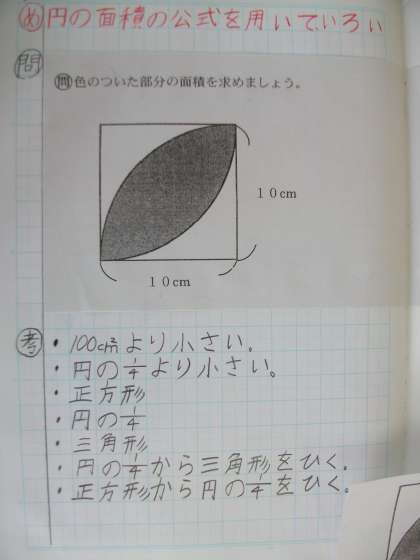 め 円の面積の公式を用いていろい
問
問 色のついた部分の面積を求めましょう。
10cm
10cm
考
・100cm²より小さい。
・円の1/4より小さい。
・正方形
・円の1/4
・三角形
・円の1/4から三角形をひく。
・正方形から円の1/4をひく。